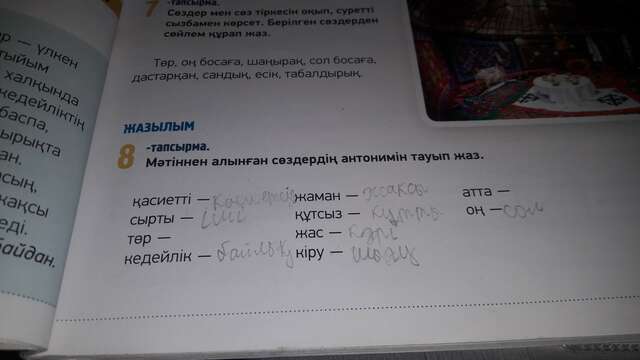 7 -тапсырма.
Сөздер мен сөз тіркесін оқып, суретті
сызбамен көрсет. Берілген сөздерден
сөйлем құрап жаз.
Төр, оң босаға, шаңырақ, сол босаға,
дастарқан, сандық, есік, табалдырық.
ЖАЗЫЛЫМ
8 -тапсырма.
Мәтіннен алынған сөздердің антонимін тауып жаз.
қасиетті — қасиетсіз жаман — жақсы атта —
сырты — іші құтсыз — құтты оң — сол
төр — жас — кәрі
кедейлік — байлық кіру — шығу
р — үлкен
тыйым
халқында
кедейліктің
баспа,
ырықта
ан.
асың,
жақсы
еді.
байдан.